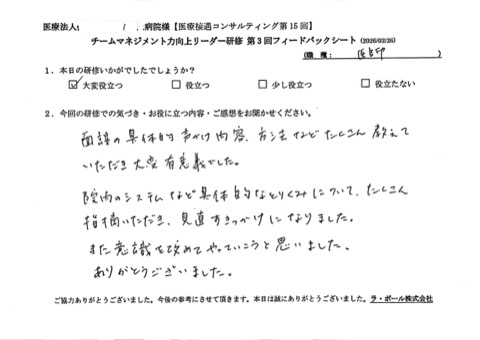 医療法人 病院様【医療接遇コンサルティング第15回】
チームマネジメント力向上リーダー研修 第3回フィードバックシート (2026/02/26)
(職 種: )
1.本日の研修いかがでしたでしょうか?
☑大変役立つ □役立つ □少し役立つ □役立たない
2.今回の研修での気づき・お役に立つ内容・ご感想をお聞かせください。
面談の具体的声かけ内容、方法などたくさん教えて
いただき大変有意義でした。
院内のシステムなど具体的なとりくみについて、たくさん
指摘いただき、見直すきっかけになりました。
また意識を改めてやっていこうと思いました。
ありがとうございました。
ご協力ありがとうございました。今後の参考にさせて頂きます。本日は誠にありがとうございました。ラ・ポール株式会社